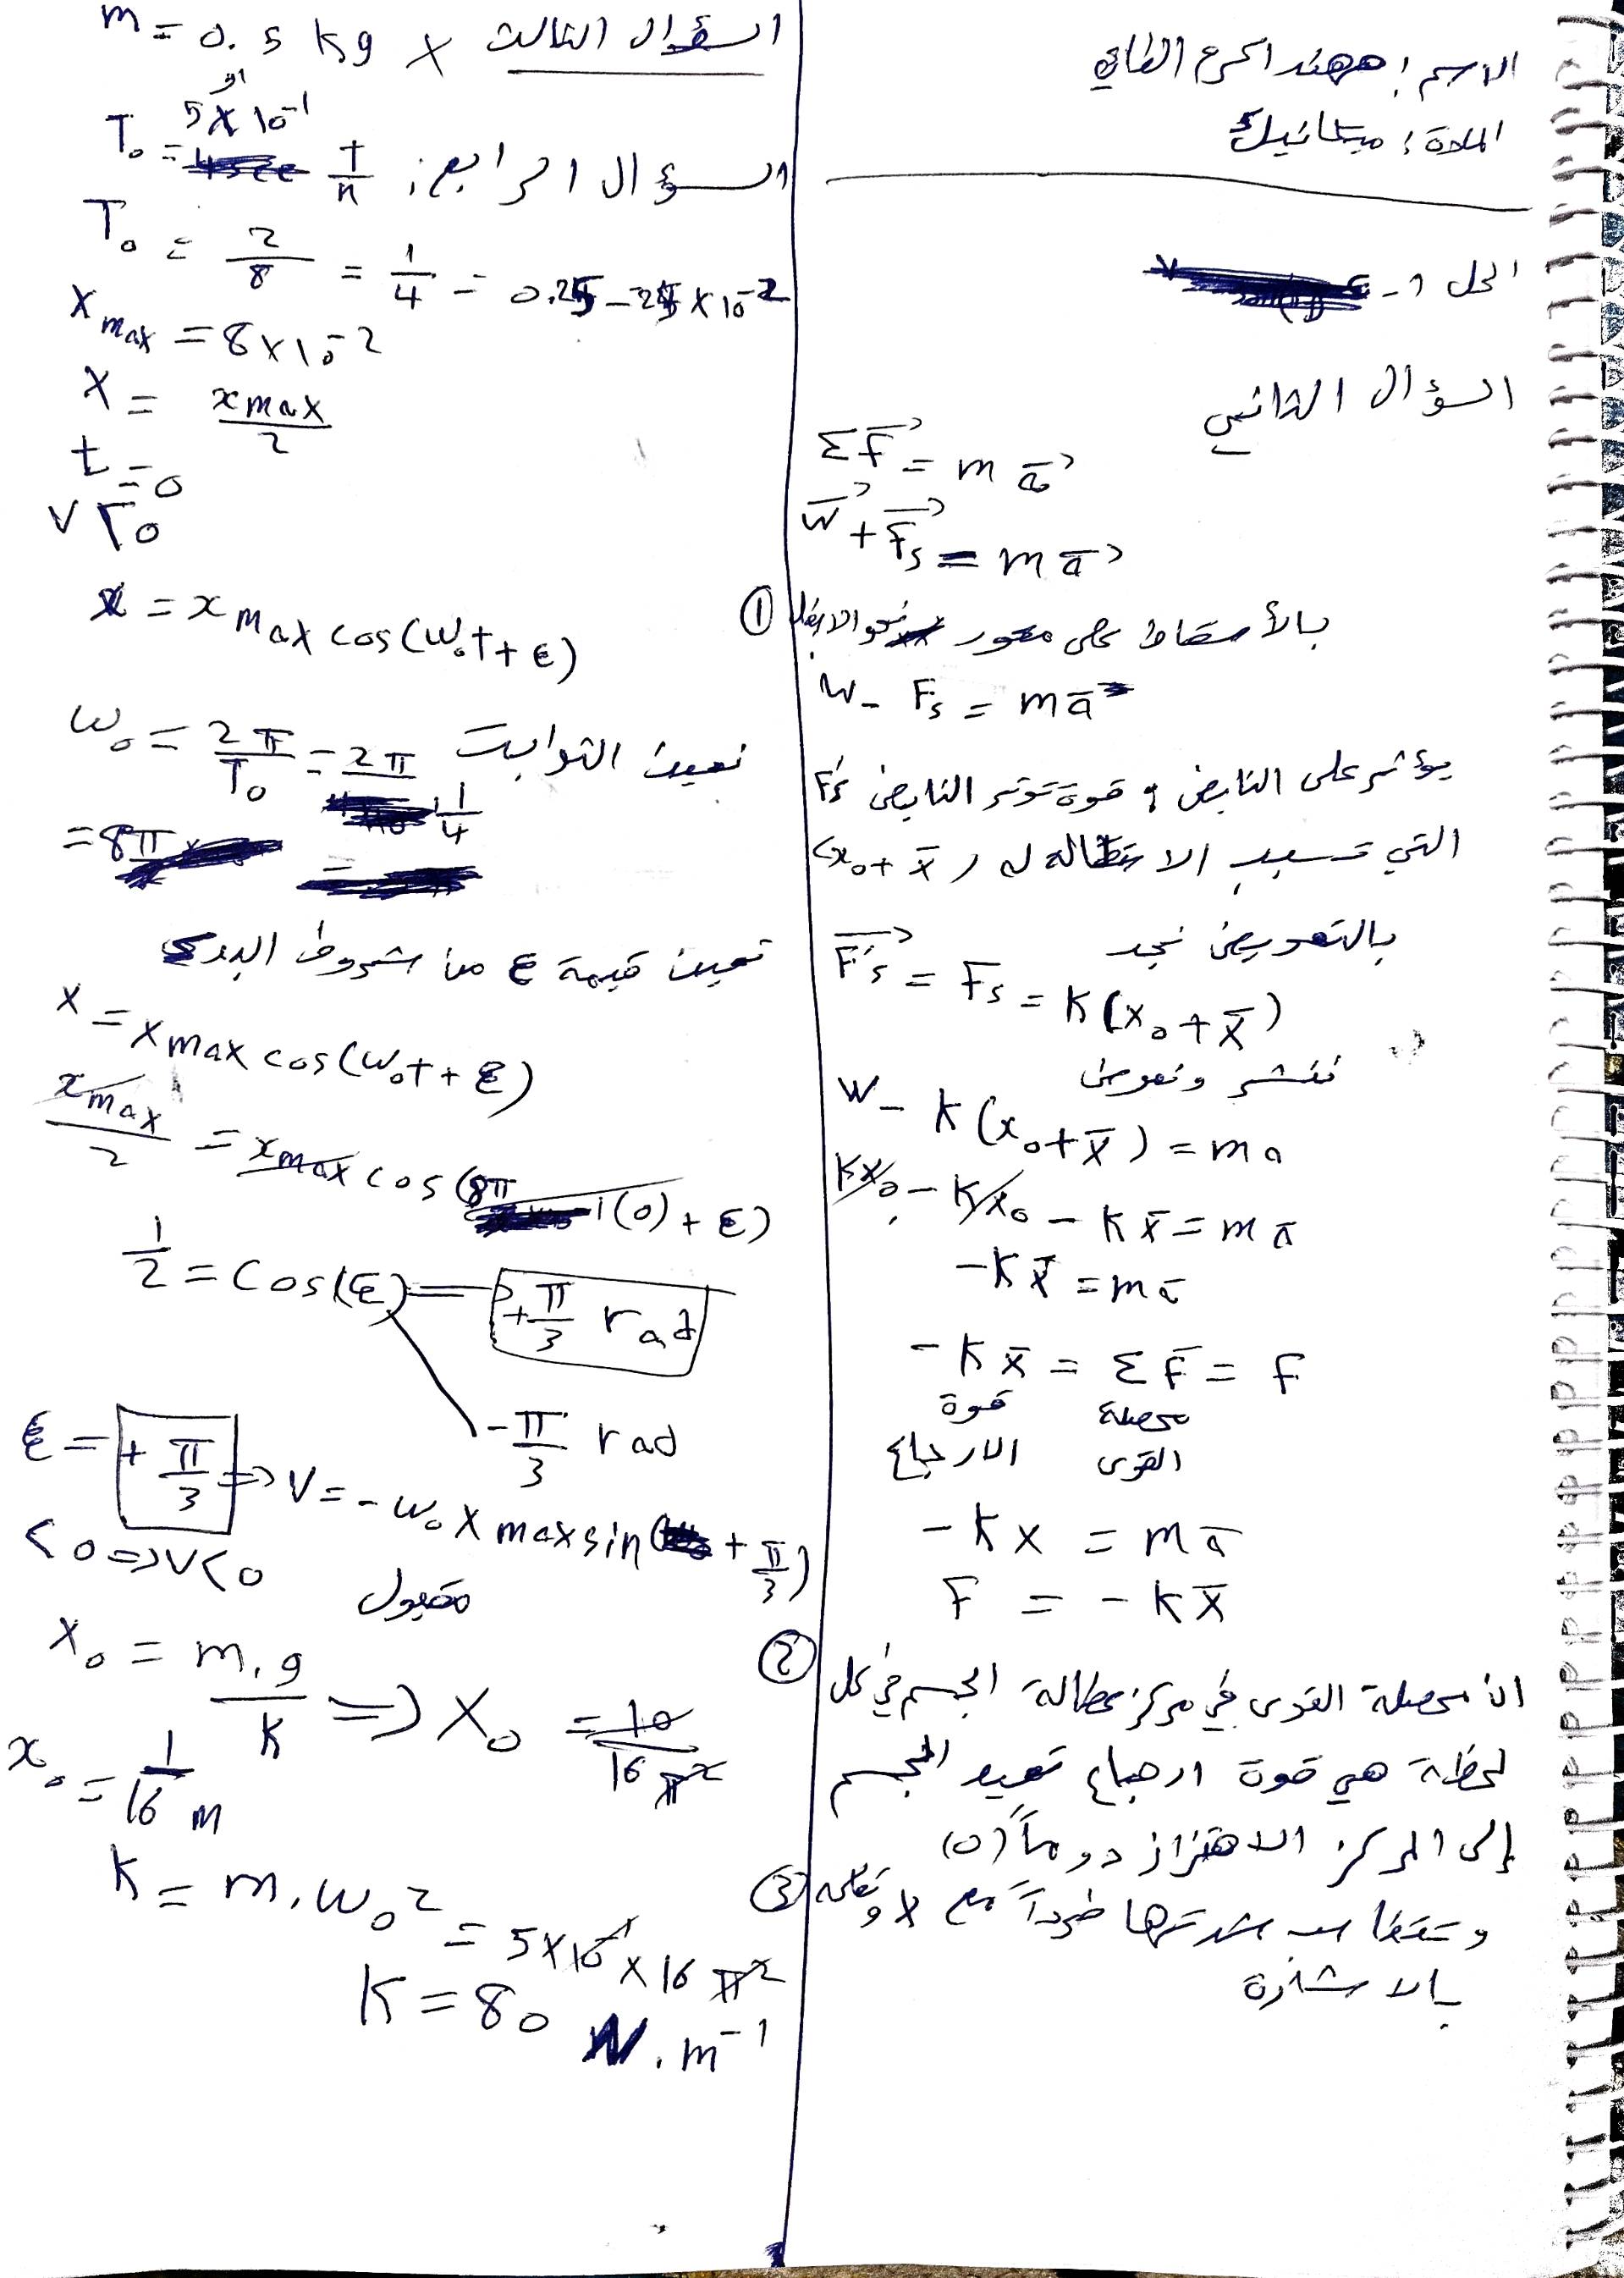 الاسم: مهند اكرم الطاني
المادة: ميكانيك
الحل 1-
السؤال الثاني
ΣF̄ = m ā
W̄ + F̄s = m ā
بالأسقاط على محور نحو الاسفل
W - Fs = m ā
يؤثر على النابض: قوة توتر النابض F's
التي تسبب الاستطالة له (x₀ + x̄)
بالتعويض نجد
F's = Fs = K(x₀ + x̄)
ننشر ونعوض
W - K(x₀ + x̄) = m a
Kx₀ - Kx₀ - K x̄ = m ā
-K x̄ = m ā
-K x̄ = ΣF̄ = F
قوة محصلة
الارجاع القوى
-K x = m ā
F = -K x̄
ان محصلة القوى في مركز عطالة الجسم في كل
لحظة هي قوة ارجاع تعيد الجسم
إلى المركز الاهتزاز دوماً (0)
وتتناسب شدتها طرداً مع x
بالاشارة
السؤال الثالث x m = 0.5 kg
او
5 × 10⁻¹
السؤال الرابع: T₀ = t/n
T₀ = 2/8 = 1/4 = 0.25 = 25 × 10⁻²
x max = 8 × 10⁻²
x = x max/2
t = 0
x = x max cos(ω₀t + ε) ①
نعين الثوابت ω₀ = 2π/T₀ = 2π/(1/4)
= 8π
نعين قيمة ε من شروط البدء
x = x max cos(ω₀t + ε)
x max/2 = x max cos(8π (0) + ε)
1/2 = cos(ε) = + π/3 rad
- π/3 rad
ε = + π/3 => v = -ω₀ x max sin( + π/3)
< 0 => v < 0
مقبول
x₀ = m.g/K => x₀ = 10/16π² ②
x₀ = 1/16 m
K = m.ω₀² = 5 × 10⁻¹ × 16 π² ③
K = 80 N.m⁻¹